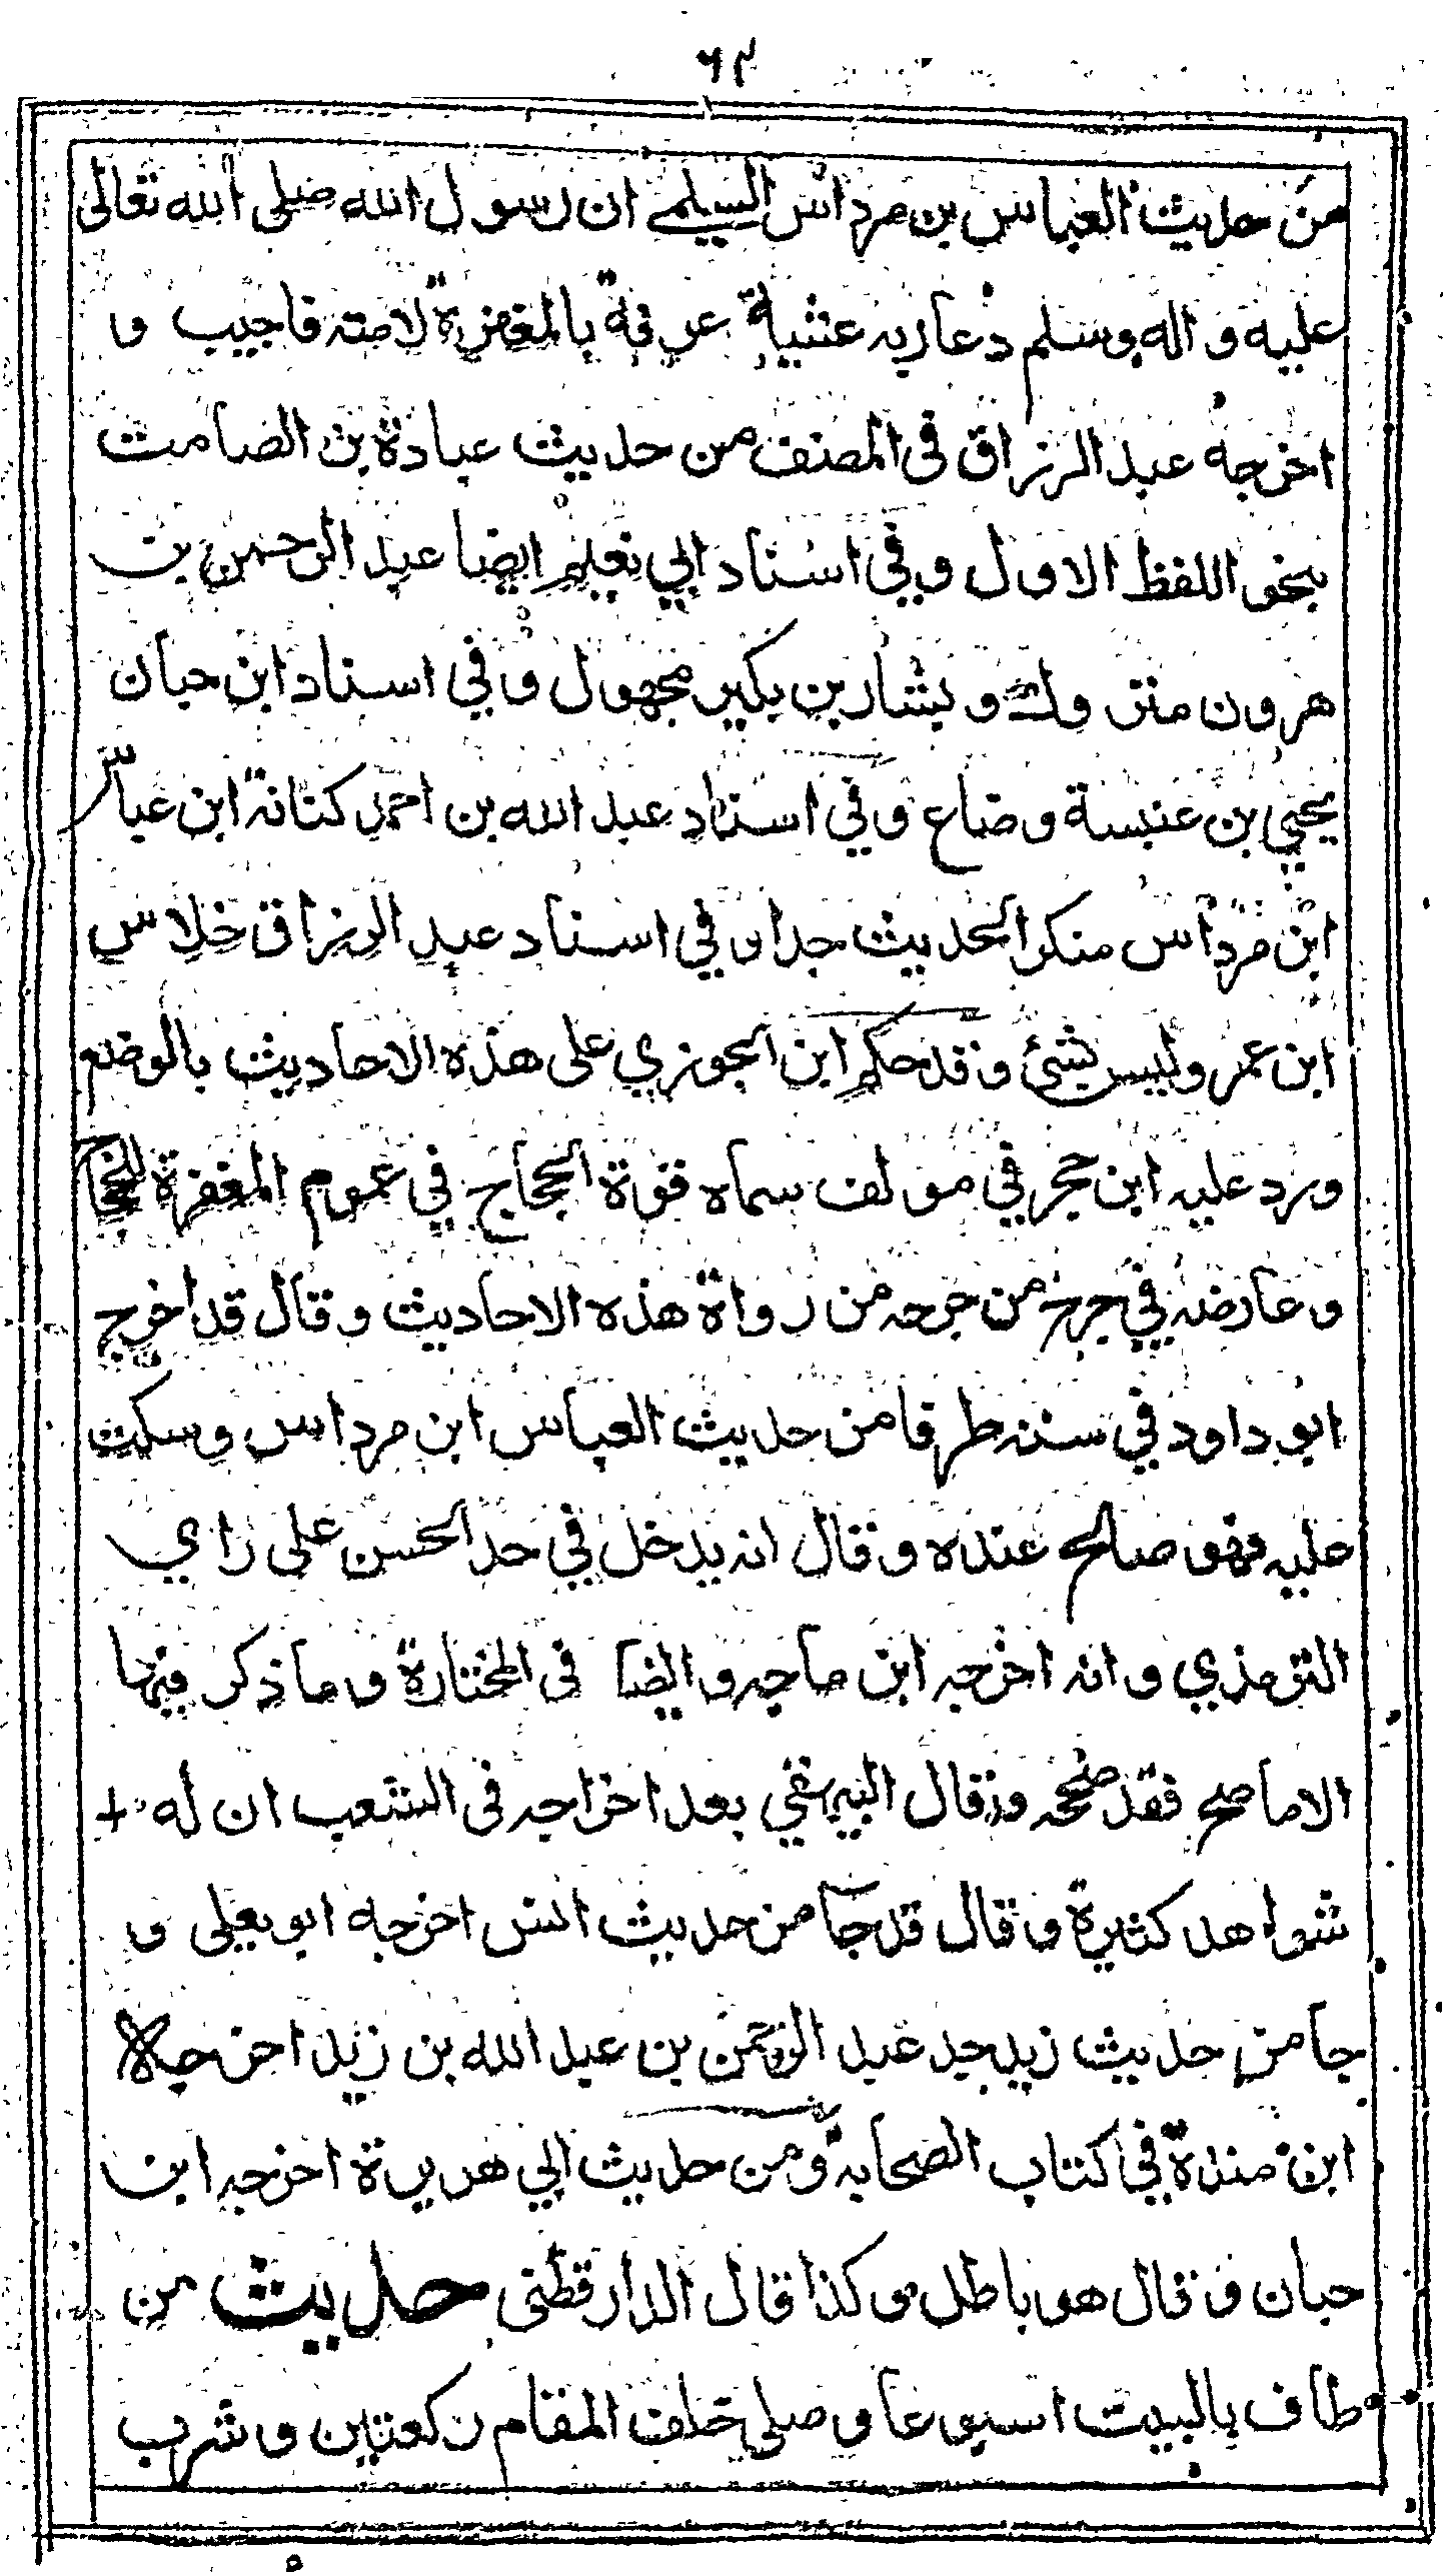 ٦٣
من حديث العباس بن مرداس السلمي ان رسول الله صلى الله تعالى
عليه و اله وسلم دعا ربه عشية عرفة بالمغفرة لامته فاجيب و
اخرجه عبد الرزاق في المصنف من حديث عبادة بن الصامت
بنحو اللفظ الاول وفي اسناد ابي نعيم ايضا عبد الرحمن بن
هرون متروك و بشار بن بكير مجهول وفي اسناد ابن حبان
يحيى بن عنبسة وضاع وفي اسناد عبد الله بن احمد كنانة ابن عباس
ابن مرداس منكر الحديث جدا وفي اسناد عبد الرزاق خلاس
ابن عمر وليس بشئ وقد حكم ابن الجوزي على هذه الاحاديث بالوضع
ورد عليه ابن حجر في مولف سماه قوة الحجاج في عموم المغفرة للحجاج
وعارضه في جرح من جرحه من رواة هذه الاحاديث وقال قد اخرج
ابو داود في سننه طرفا من حديث العباس ابن مرداس وسكت
عليه فهو صالح عنده وقال انه يدخل في حد الحسن على راي
الترمذي وانه اخرجه ابن ماجه والضيا في المختارة وما ذكر فيها
الا ما صح فقد صححه وقال البيهقي بعد اخراجه في الشعب ان له
شواهد كثيرة وقال قد جا من حديث انس اخرجه ابو يعلى و
جا من حديث زيد جد عبد الرحمن بن عبد الله بن زيد اخرجه
ابن مندة في كتاب الصحابة ومن حديث ابي هريرة اخرجه ابن
حبان وقال هو باطل وكذا قال الدارقطني حديث من
طاف بالبيت اسبوعا وصلى خلف المقام ركعتين وشرب